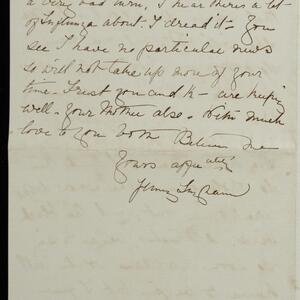 a very bad turn, I hear there's a lot
of Influenza about. I dread it - You
see I have no particular news
so will not take up more of your
time. Trust you and K - are keeping
well. Your Mother also. With much
love to you both Believe me
Yours affec